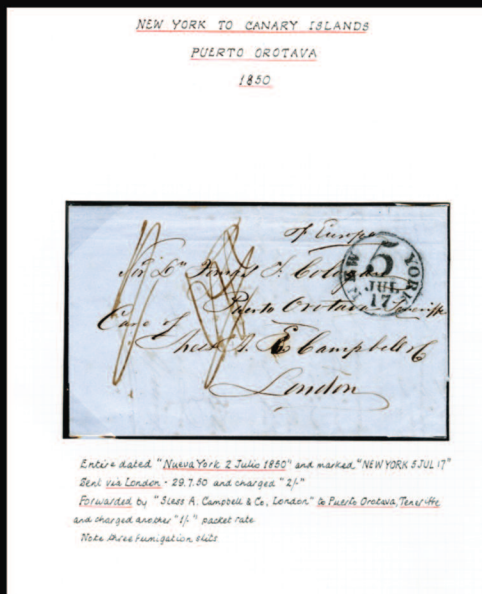 NEW YORK TO CANARY ISLANDS
PUERTO OROTAVA
1850
of Europe
NEW YORK
5
JUL
17
Puerto Orotava
Care of
Campbell & Co
London
Entire dated "Nueva York 2 Julio 1850" and marked "NEW YORK 5 JUL 17"
Sent via London - 29.7.50 and charged "2/-"
Forwarded by "Sless A. Campbell & Co, London" to Puerto Orotava, Teneriffe
and charged another "1/-" packet rate
Note three fumigation slits